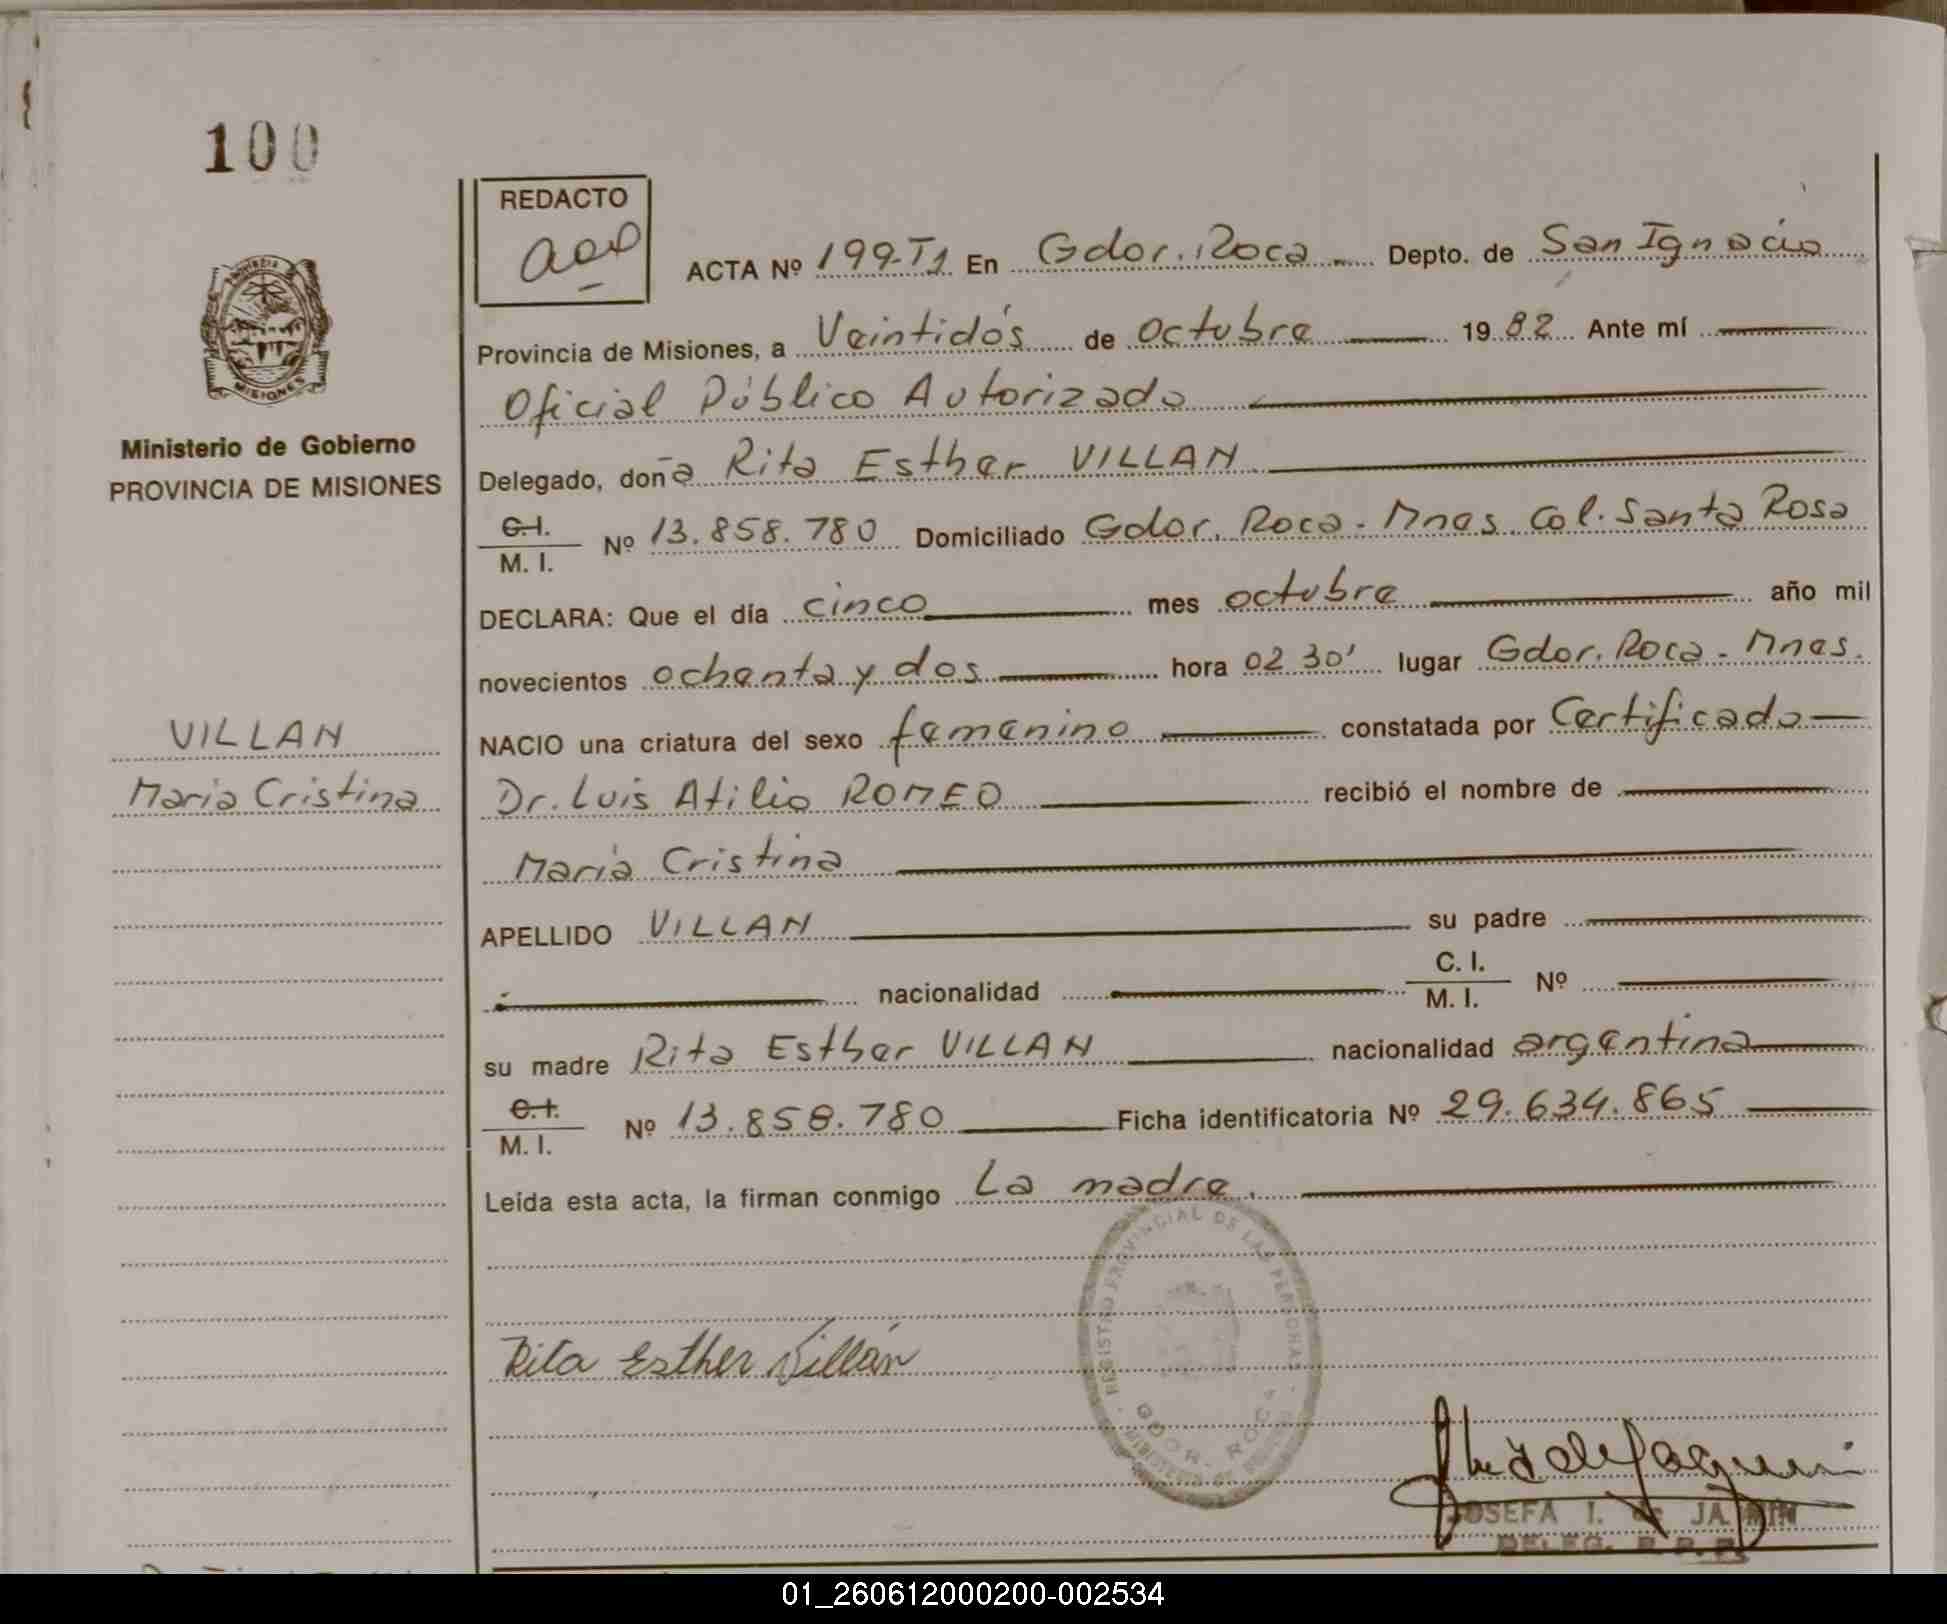 100
REDACTO
PROVINCIA
MISIONES
ACTA Nº 199-T1 En Gdor. Roca Depto. de San Ignacio
Provincia de Misiones, a Veintidós de octubre 1982 Ante mí
Oficial Público Autorizado
Ministerio de Gobierno
PROVINCIA DE MISIONES
Delegado, doña Rita Esther VILLAN
C.I. M. I. Nº 13.858.780 Domiciliado Gdor. Roca - Mnes. Col. Santa Rosa
DECLARA: Que el día cinco mes octubre año mil
novecientos ochenta y dos hora 02 30' lugar Gdor. Roca - Mnes.
VILLAN
Maria Cristina
NACIO una criatura del sexo femenino constatada por Certificado
Dr. Luis Atilio ROMEO recibió el nombre de
María Cristina
APELLIDO VILLAN su padre
nacionalidad C. I. M. I. Nº
su madre Rita Esther VILLAN nacionalidad argentina
C.I. M. I. Nº 13.858.780 Ficha identificatoria Nº 29.634.865
Leída esta acta, la firman conmigo La madre.
REGISTRO PROVINCIAL DE LAS PERSONAS
GDOR. ROCA
Rita Esther Villán
JOSEFA I. de
DELEG. R. P. P.
01_260612000200-002534